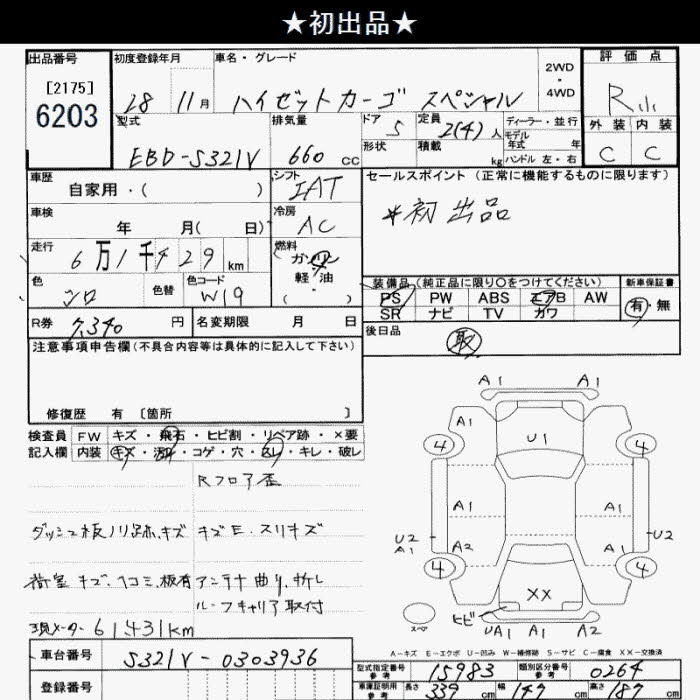 ★初出品★
出品番号
[2175]
6203
初度登録年月
28 11月
車名・グレード
ハイゼットカーゴ スペシャル
2WD
・
4WD
評価点
R
外装 内装
C C
型式
EBD-S321V
排気量
660 cc
ドア
5
定員
2(4)人
形状
積載
kg
ディーラー・並行
モデル
年式 年
ハンドル 左・右
車歴
自家用・( )
シフト
IAT
セールスポイント (正常に機能するものに限ります)
*初出品
車検
年 月( 日)
冷房
AC
走行
6万1千429km
燃料
ガソリン
軽・油
( )
色
シロ
色替
色コード
W19
装備品(純正品に限り○をつけてください)
PS PW ABS エアB AW
SR ナビ TV カワ
新車保証書
有・無
R券
7,340円
名変期限 月 日
後日品
取
注意事項申告欄(不具合内容等は具体的に記入して下さい)
修復歴 有 [箇所 ]
検査員 FW キズ・飛石・ヒビ割・リペア跡・×要
記入欄 内装 キズ・汚れ・コゲ・穴・スレ・キレ・破レ
Rフロア歪
ダッシュ板ノリ跡、キズ
キズE・スリキズ
荷室キズ、ヘコミ、板有
アンテナ曲り、折レ
ルーフキャリア取付
現メーター61431km
A1 A1
A1 U1 A1
4 4
A1 A1
U2
A1 A2 A1 U2
4 4
XX
スペア
ヒビ
UA1 A1 A2
A-キズ E-エクボ U-凹み W-補修跡 S-サビ C-腐食 XX-交換済
車台番号
S321V-0303936
登録番号
型式指定番号
参考
15983
類別区分番号
参考
0264
車庫証明用
参考
長さ 339 cm 幅 147 cm 高さ 187 cm